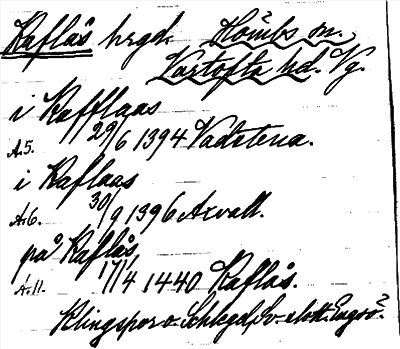 Kaflås hrgd. Hömbs sn.,
Vartofta hd. Vg.
i Kafflaas
A.5. 29/6 1394 Vadstena.
i Kaflaas
A.6. 30/9 1396 Axvall.
på Kaflås
A.11. 17/4 1440 Kaflås.
Klingspor o. Schlegel, Sv. slott. Engsö?